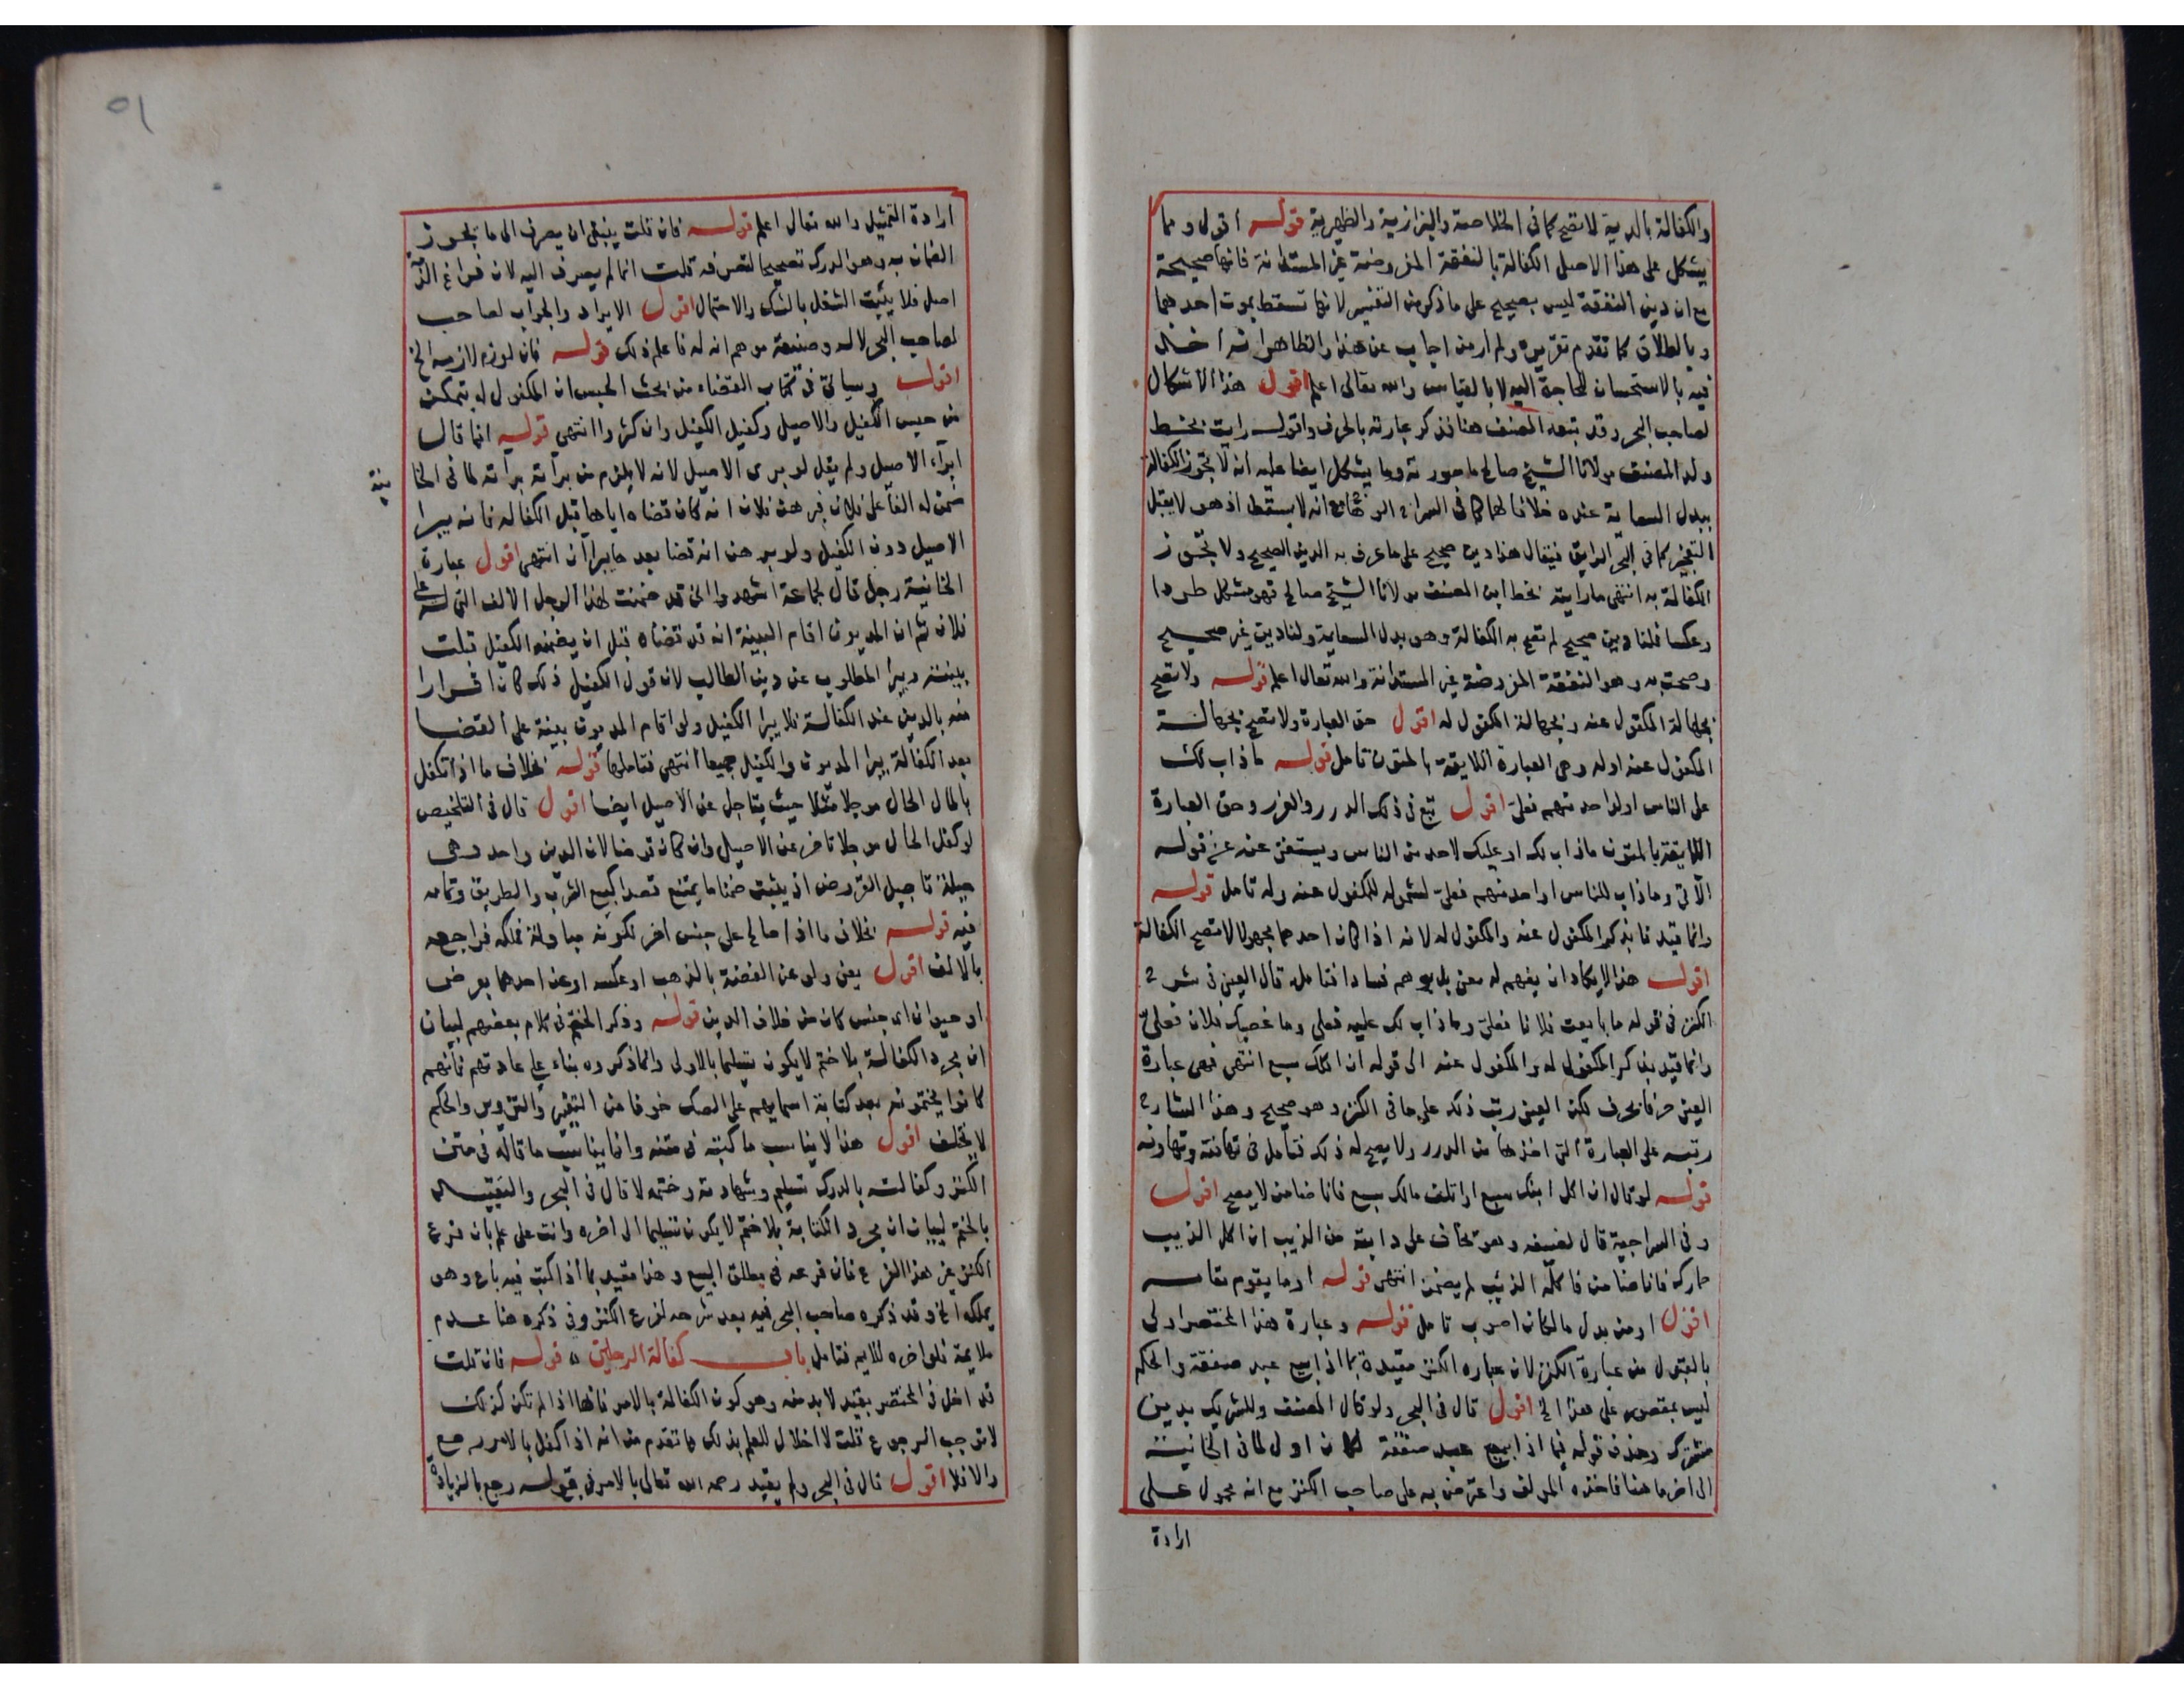 والكفالة بالدية لا تصح كما في الخلاصة والبزازية والظهيرية قوله اقول ومما
يشكل على هذا الاصل الكفالة بالنفقة المفروضة غير المستدانة فانها صحيحة
مع ان دين النفقة ليس بصحيح على ما ذكر من التفسير لانها تسقط بموت احدهما
وبالطلاق كما تقدم تقريره ولم ار من اجاب عن هذا والظاهر انه اخذ
فيه بالاستحسان للحاجة اليه لا بالقياس والله تعالى اعلم اقول هذا الاشكال
لصاحب البحر وقد تبعه المصنف هنا فذكر عبارته بالحرف واقول رايت بخط
ولد المصنف مولانا الشيخ صالح ما صورته ومما يشكل ايضا عليه انه لا تجوز الكفالة
ببدل السعاية عنده خلافا لهما كما في السراج مع انه لا يسقط اذ هو لا يقبل
التعجيز كما في البحر الرايق فيقال هذا دين صحيح على ما عرف به الدين الصحيح ولا تجوز
الكفالة به انتهى ما رايته بخط ابن المصنف مولانا الشيخ صالح فهو مشكل طردا
وعكسا فلنا دين صحيح لم تصح به الكفالة وهو بدل السعاية ولنا دين غير صحيح
وصحت به وهو النفقة المفروضة غير المستدانة والله تعالى اعلم قوله ولا تصح
بجهالة المكفول عنه وبجهالة المكفول له اقول حق العبارة ولا تصح بجهالة
المكفول عنه اوله وهي العبارة اللايقة بالمتون تامل قوله ما ذاب لك
على الناس او لواحد منهم فعلي اقول تبع في ذلك الدرر والغرر وحق العبارة
اللايقة بالمتون ما ذاب لك او عليك لاحد من الناس ويستغنى عنه عن قوله
الاتي وما ذاب للناس او احد منهم فعلي لشموله للمكفول عنه وله تامل قوله
وانما قيدنا بذكر المكفول عنه والمكفول له لانه اذا كان احدهما مجهولا لا تصح الكفالة
اقول هذا لا يكاد ان يفهم له معنى بل يوهم فسادا فتامل قال العيني في شرح
الكنز في قوله ما بايعت فلانا فعلي وما ذاب لك عليه فعلي وما غصبك فلان فعلي
وانما قيد بذكر المكفول له والمكفول عنه الى قوله ان اكلك سبع انتهى فهي عبارة
العيني حرفا بحرف لكن العيني رتب ذلك على ما في الكنز وهو صحيح وهذا الشارح
رتبه على العبارة التي اخذها من الدرر ولا يصح له ذلك فتامل في تهافته وتهاونه
قوله لو قال ان اكل ابنك سبع او اتلف مالك سبع فانا ضامن لا يصح اقول
وفي السراجية قال لضيفه وهو يخاف على دابته من الذيب ان اكل الذيب
حمارك فانا ضامن فاكله الذيب لم يضمن انتهى قوله او ما يقوم مقامه
اقول او من بدل ما لكان اصوب تامل قوله وعبارة هذا المختصر اولى
بالقبول من عبارة الكنز لان عباره الكنز مقيدة بما اذا بيع عبد صفقة والحكم
ليس بمقصور على هذا الخ اقول قال في البحر ولو قال المصنف وللشريك بدين
مشترك وحذف قوله فيما اذا بيع عبد صفقة لكان اولى لما في الخانية
الى اخر ما هنا فاخذه المولف واعترض به على صاحب الكنز مع انه محمول على
ارادة
٥١
ارادة التمثيل والله تعالى اعلم قوله فان قلت ينبغي ان يصرف الى ما يجوز
الضمان به وهو الدرك تصحيحا لتصرفه قلت انما لم يصرف اليه لان فراغ الذمة
اصل فلا يثبت الشغل بالشك والاحتمال اقول الايراد والجواب لصاحب
لصاحب البحر لا له وصنيعه موهم انه له فاعلم ذلك قوله فان لوزم لازمه الخ
اقول وسياتي في كتاب القضاء من بحث الحبس ان المكفول له يتمكن
من حبس الكفيل والاصيل وكفيل الكفيل وان كثروا انتهى قوله انما قال
ابراء الاصيل ولم يقل لو برى الاصيل لانه لا يلزم من براته براته لما في الخا
نية
ضمن له الفا على فلان فبرهن فلان انه كان قضاه اياها قبل الكفاله فانه يبرا
الاصيل دون الكفيل ولو برهن انه قضا بعد ها يبرآن انتهى اقول عبارة
الخانية رجل قال لجماعة اشهدوا اني قد ضمنت لهذا الرجل الالف التي له على
فلان ثم ان المديون اقام البينة انه قد قضاه قبل ان يضمنه الكفيل قبلت
بينته ويبرا المطلوب عن دين الطالب لان قول الكفيل ذلك كان اقرارا
منه بالدين عند الكفالة فلا يبرا الكفيل ولو اقام المديون بينة على القضا
بعد الكفالة يبرا المديون والكفيل جميعا انتهى فتاملها قوله بخلاف ما اذا تكفل
بالمال الحال موجلا مثلا حيث يتاجل عن الاصيل ايضا اقول قال في التلخيص
لو كفل الحال موجلا تاخر عن الاصيل وان كان قرضا لان الدين واحد وهي
حيلة تاجيل القروض اذ يثبت ضمنا ما يمتنع قصدا كبيع الشرب والطريق وتمامه
فيه قوله بخلاف ما اذا صالح على جنس اخر لكونه مبادلة فملكه فراجعه
بالالف اقول يعني ولو عن الفضة بالذهب او عكسه او عن احدهما بعرض
او حيوان اي جنس كان من خلاف الدين قوله وذكر الختم في كلام بعضهم لبيان
ان مجرد الكفالة بلا ختم لا يكون تسليما بالاولى وانما ذكروه بناء على عادتهم فانهم
كانوا يختمونه بعد كتابة اسمايهم على الصك خوفا من التغير والتزوير والحكم
لا يختلف اقول هذا لا يناسب ما كتبه في متنه وانما يناسب ما قاله في متن
الكنز وكفالته بالدرك تسليم وشهادته وختمه لا قال في البحر والتقييد
بالختم لبيان ان مجرد الكتابة بلا ختم لا يكون تسليما الى اخره وانت على علم بان فرع
الكنز غير هذا الفرع فان فرعه في مطلق البيع وهذا مقيد بما اذا كتب فيه باع وهو
يملكه الخ وقد ذكره صاحب البحر فيه بعد شرحه لفرع الكنز وفي ذكره هنا عدم
ملايمة فلو اخره للايم فتامل باب كفالة الرجلين قوله فان قلت
قد اخل في المختصر بقيد لا بد منه وهو كون الكفالة بالامر فانها اذا لم تكن كذلك
لا توجب الرجوع قلت لا اخلال للعلم بذلك مما تقدم من انه اذا كفل بالامر رجع
والا فلا اقول قال في البحر ولم يقيد رحمه الله تعالى بالامر في قوله رجع بالزيادة